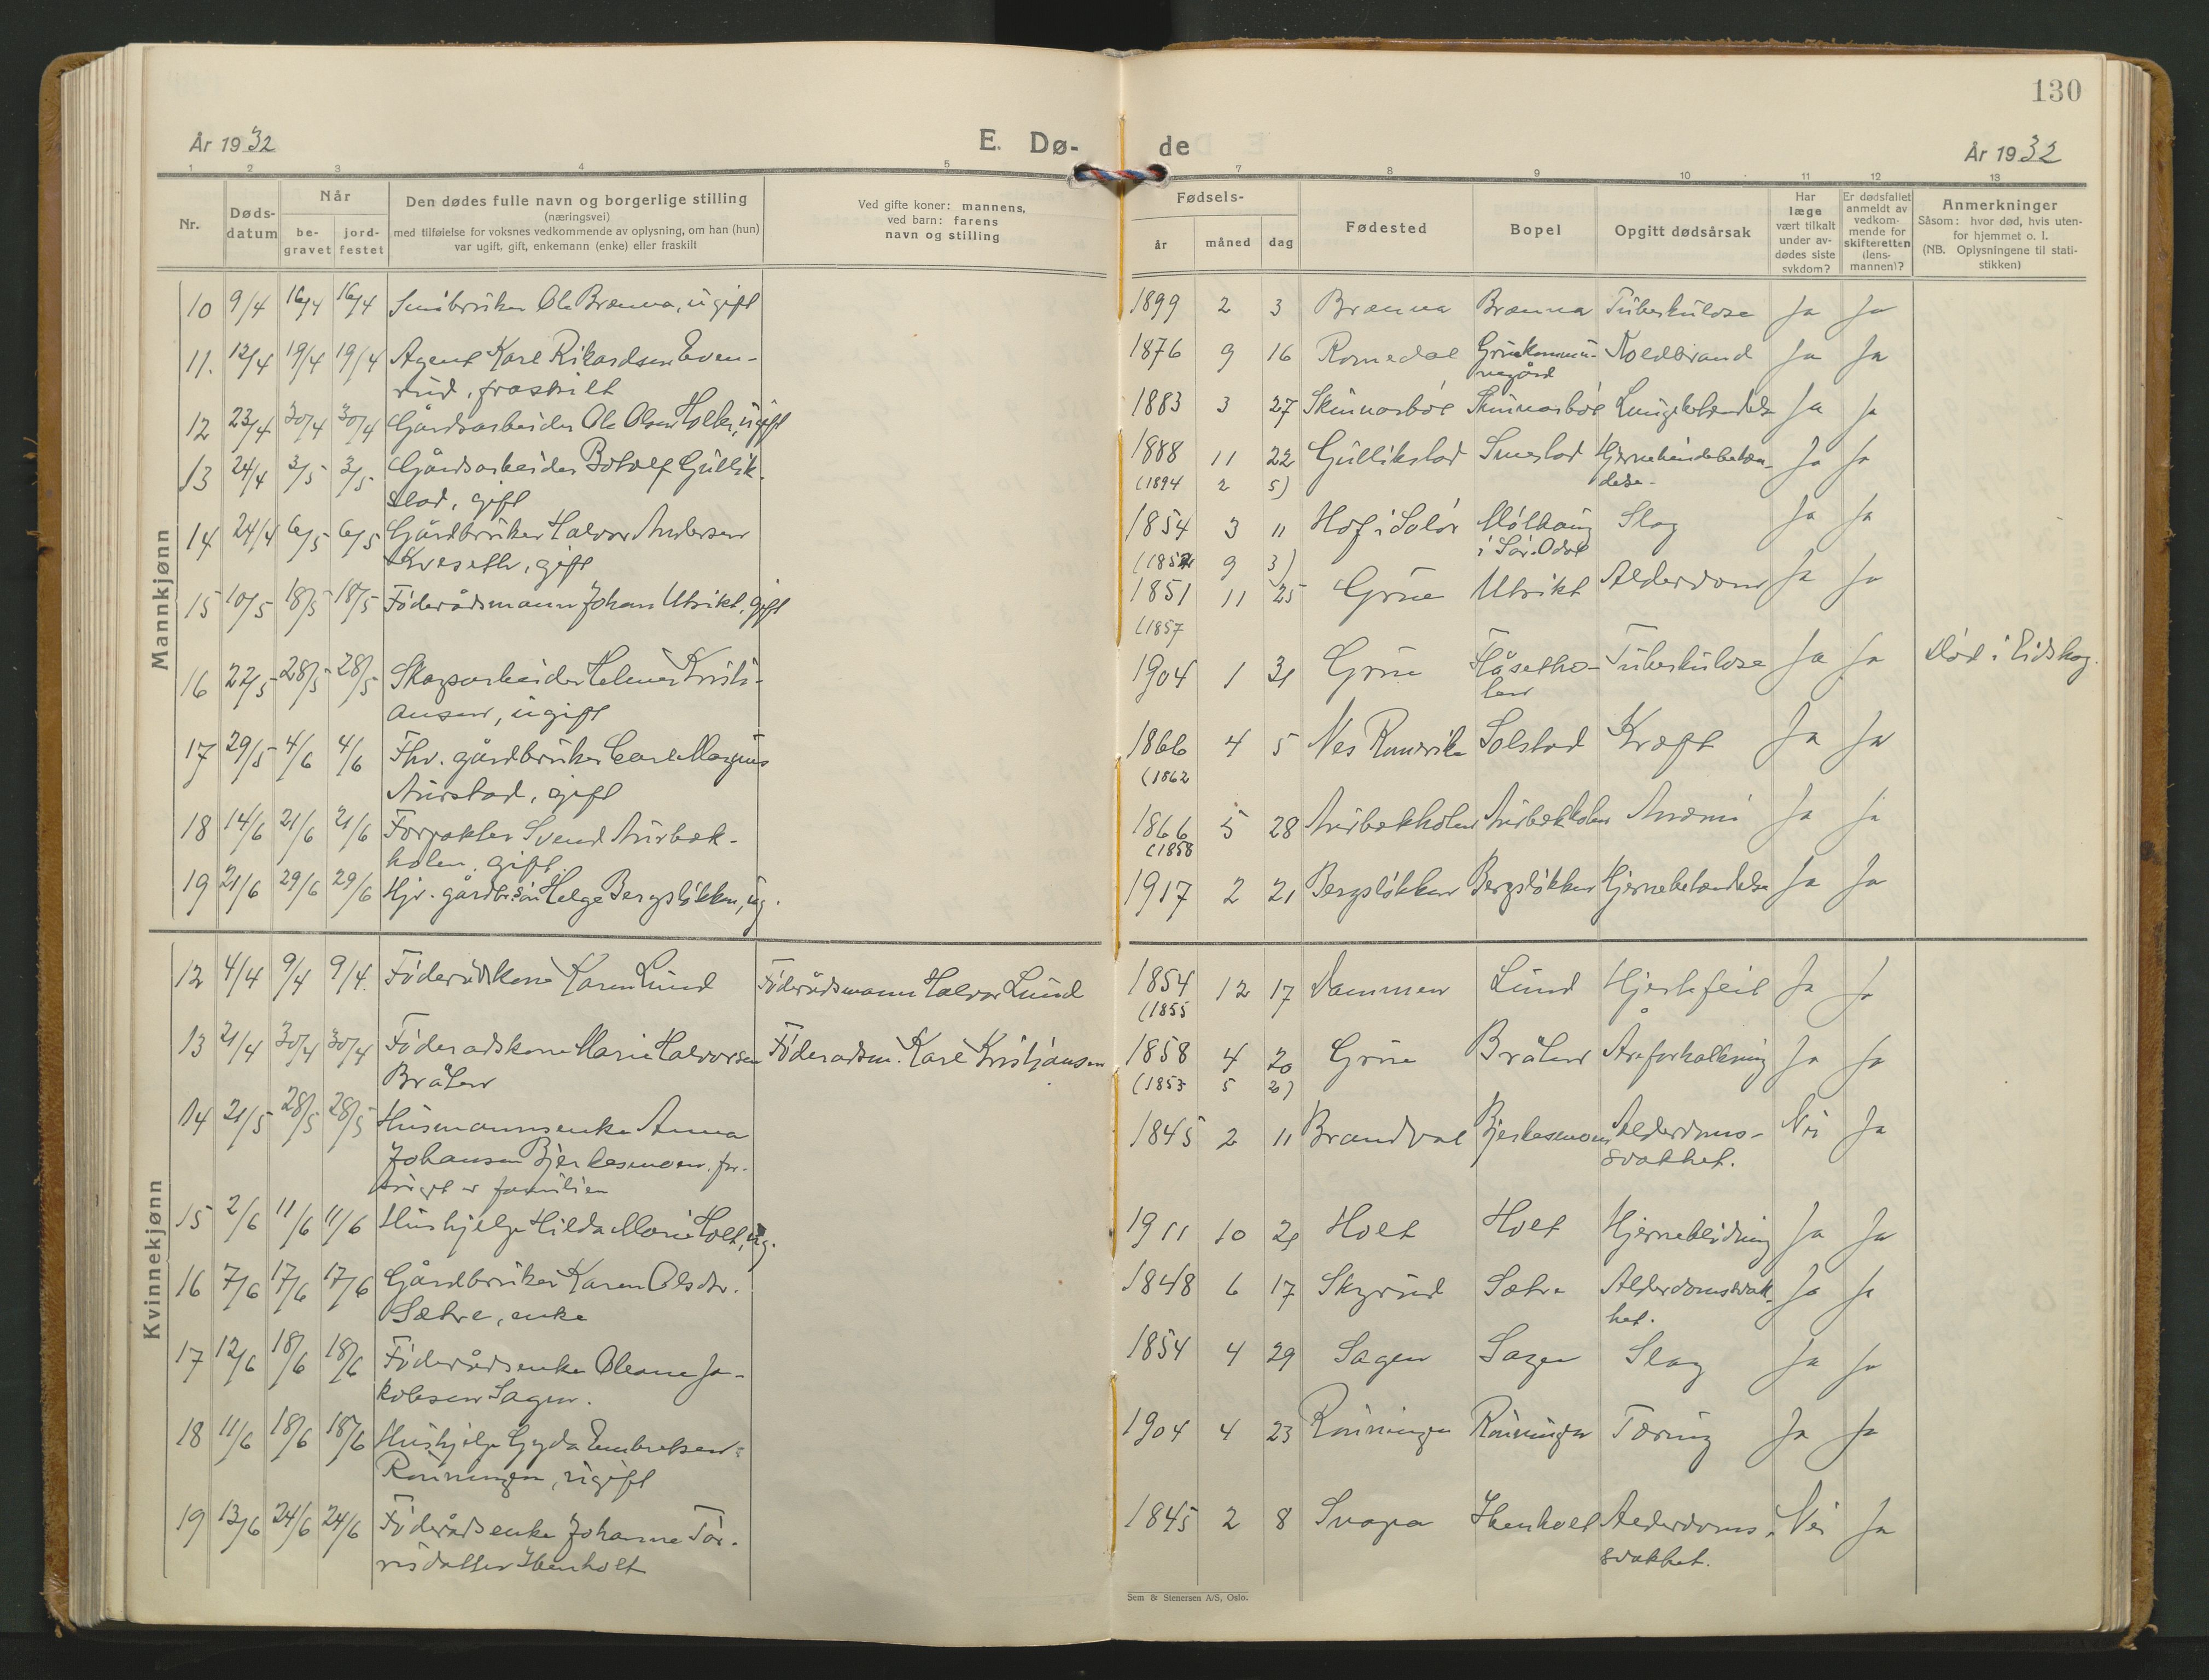 130
År 1932
E. Dø-
de
År 1932
1 2 3 4 5 7 8 9 10 11 12 13
Nr.
Døds-
datum
Når
be-
gravet
jord-
festet
Den dødes fulle navn og borgerlige stilling
(næringsvei)
med tilføielse for voksnes vedkommende av oplysning, om han (hun)
var ugift, gift, enkemann (enke) eller fraskilt
Ved gifte koner: mannens,
ved barn: farens
navn og stilling
Fødsels-
år måned dag
Fødested
Bopel
Opgitt dødsårsak
Har
læge
vært tilkalt
under av-
dødes siste
sykdom?
Er dødsfallet
anmeldt av
vedkom-
mende for
skifteretten
(lens-
mannen)?
Anmerkninger
Såsom: hvor død, hvis uten-
for hjemmet o. l.
(NB. Oplysningene til stati-
stikken)
Mannkjønn
10 9/4 16/4 16/4 Småbruker Ole Brænna, ugift 1899 2 3 Brænna Brænna Tuberkulose Ja Ja
11. 12/4 19/4 19/4 Agent Karl Rikardsen Even- 1876 9 16 Romedal Gruekommu- Koldbrand Ja Ja
rud, fraskilt negård
12 23/4 30/4 30/4 Gårdsarbeider Ole Olsen, ugift 1883 3 27 Skinnarbøl Skinnarbøl Lungebetændelse Ja Ja
13 24/4 3/5 3/5 Gårdsarbeider Botolf Gullik- 1888 11 22 Gullikstad Smestad Hjernehindebetæn- Ja Ja
stad, gift (1894 2 5) delse
14 24/4 6/5 6/5 Gårdbruker Halvor Andersen 1854 3 11 Hof i Solør Slag Ja Ja
Kveseth, gift (1852 9 3) i Sør-Odal
15 10/5 18/5 18/5 Føderådsmann Johan Utsikt, gift 1851 11 25 Grue Utsikt Alderdom Ja Ja
(1857
16 22/5 28/5 28/5 Skogsarbeider Helmer Kristi- 1904 1 31 Grue Håsetho- Tuberkulose Ja Ja Død i Eidskog.
ansen, ugift len
17 29/5 4/6 4/6 Fhv. gårdbruker Carl Magnus 1866 4 5 Nes Romerike Solstad Kræft Ja Ja
Aurstad, gift (1862
18 14/6 21/6 21/6 Forpakter Svend Aurbek- 1866 5 28 Aurbekholen Aurbekholen Anæmi Ja Ja
holen, gift (1858
19 21/6 29/6 29/6 Hjv. gårdbr.søn Helge Bergsløkken, ug. 1917 2 21 Bergsløkken Bergsløkken Hjernebetændelse Ja Ja
Kvinnekjønn
12 4/4 9/4 9/4. Føderådskone Karen Lund Føderådsmann Halvor Lund 1854 12 17 Dammen Lund Hjertefeil Ja Ja
(1855
13 21/4 30/4 30/4 Føderadskone Marie Halvorsen Føderadsm. Karl Kristiansen 1858 4 20 Grue Bråten Åreforkalkning Ja Ja
Bråten (1853 5 20)
14 21/5 28/5 28/5 Husmannsenke Anna 1845 2 11 Brandval Bjerkesmoen Alderdoms- Nei Ja
Johansen Bjerkesmoen. for- svakhet.
sørget av familien
15 2/6 11/6 11/6 Hushjelp Hilda Marie Holt, ug. 1911 10 21 Holt Holt Hjerneblødning Ja Ja
16 7/6 17/6 17/6 Gårdbruker Karen Olsdtr. 1848 6 17 Skyrud Sætre Alderdomssvak- Ja Ja
Sætre, enke het.
17 12/6 18/6 18/6 Føderådsenke Oleane Ja- 1854 4 29 Sagen Sagen Slag Ja Ja
kobsen Sagen.
18 11/6 18/6 18/6 Hushjelp Gyda Embretsen 1904 4 23 Rønningen Rønningen Tæring Ja Ja
Rønningen, ugift
19 13/6 24/6 24/6 Føderådsenke Johanne Tor- 1845 2 8 Svapa Ibenholt Alderdoms- Nei Ja
risdatter Ibenholt svakhet.
Sem & Stenersen A/S, Oslo.